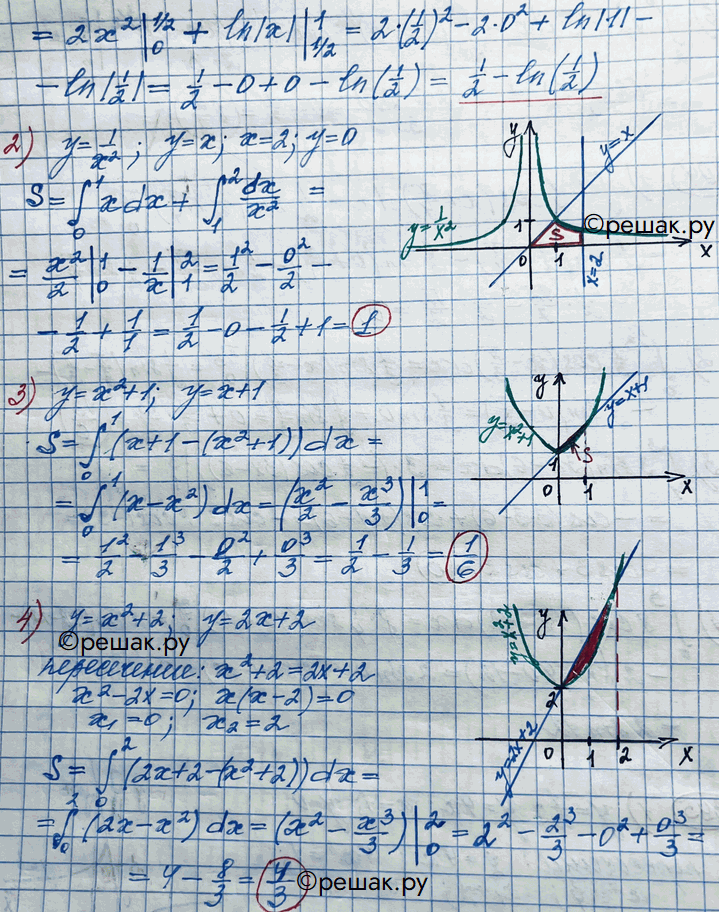 = 2x²|₀^{1/2} + ln|x||_{1/2}^{1} = 2·(1/2)² - 2·0² + ln|1| -
- ln|1/2| = 1/2 - 0 + 0 - ln(1/2) = 1/2 - ln(1/2)
2) y = 1/x²; y = x; x = 2; y = 0
S = ∫₀¹ x dx + ∫₁² dx/x² =
= x²/2|₀¹ - 1/x|₁² = 1²/2 - 0²/2 -
- 1/2 + 1/1 = 1/2 - 0 - 1/2 + 1 = 1
y
y = x
y = 1/x²
1
S
©решак.ру
0
1
x = 2
x
3) y = x² + 1; y = x + 1
S = ∫₀¹ (x + 1 - (x² + 1)) dx =
= ∫₀¹ (x - x²) dx = (x²/2 - x³/3)|₀¹ =
= 1²/2 - 1³/3 - 0²/2 + 0³/3 = 1/2 - 1/3 = 1/6
y
y = x + 1
y = x² + 1
S
1
0
1
x
4) y = x² + 2; y = 2x + 2
©решак.ру
пересечение: x² + 2 = 2x + 2
x² - 2x = 0; x(x - 2) = 0
x₁ = 0; x₂ = 2
S = ∫₀² (2x + 2 - (x² + 2)) dx =
= ∫₀² (2x - x²) dx = (x² - x³/3)|₀² = 2² - 2³/3 - 0² + 0³/3 =
= 4 - 8/3 = 4/3
©решак.ру
y
y = x² + 2
2
y = 2x + 2
0
1
2
x